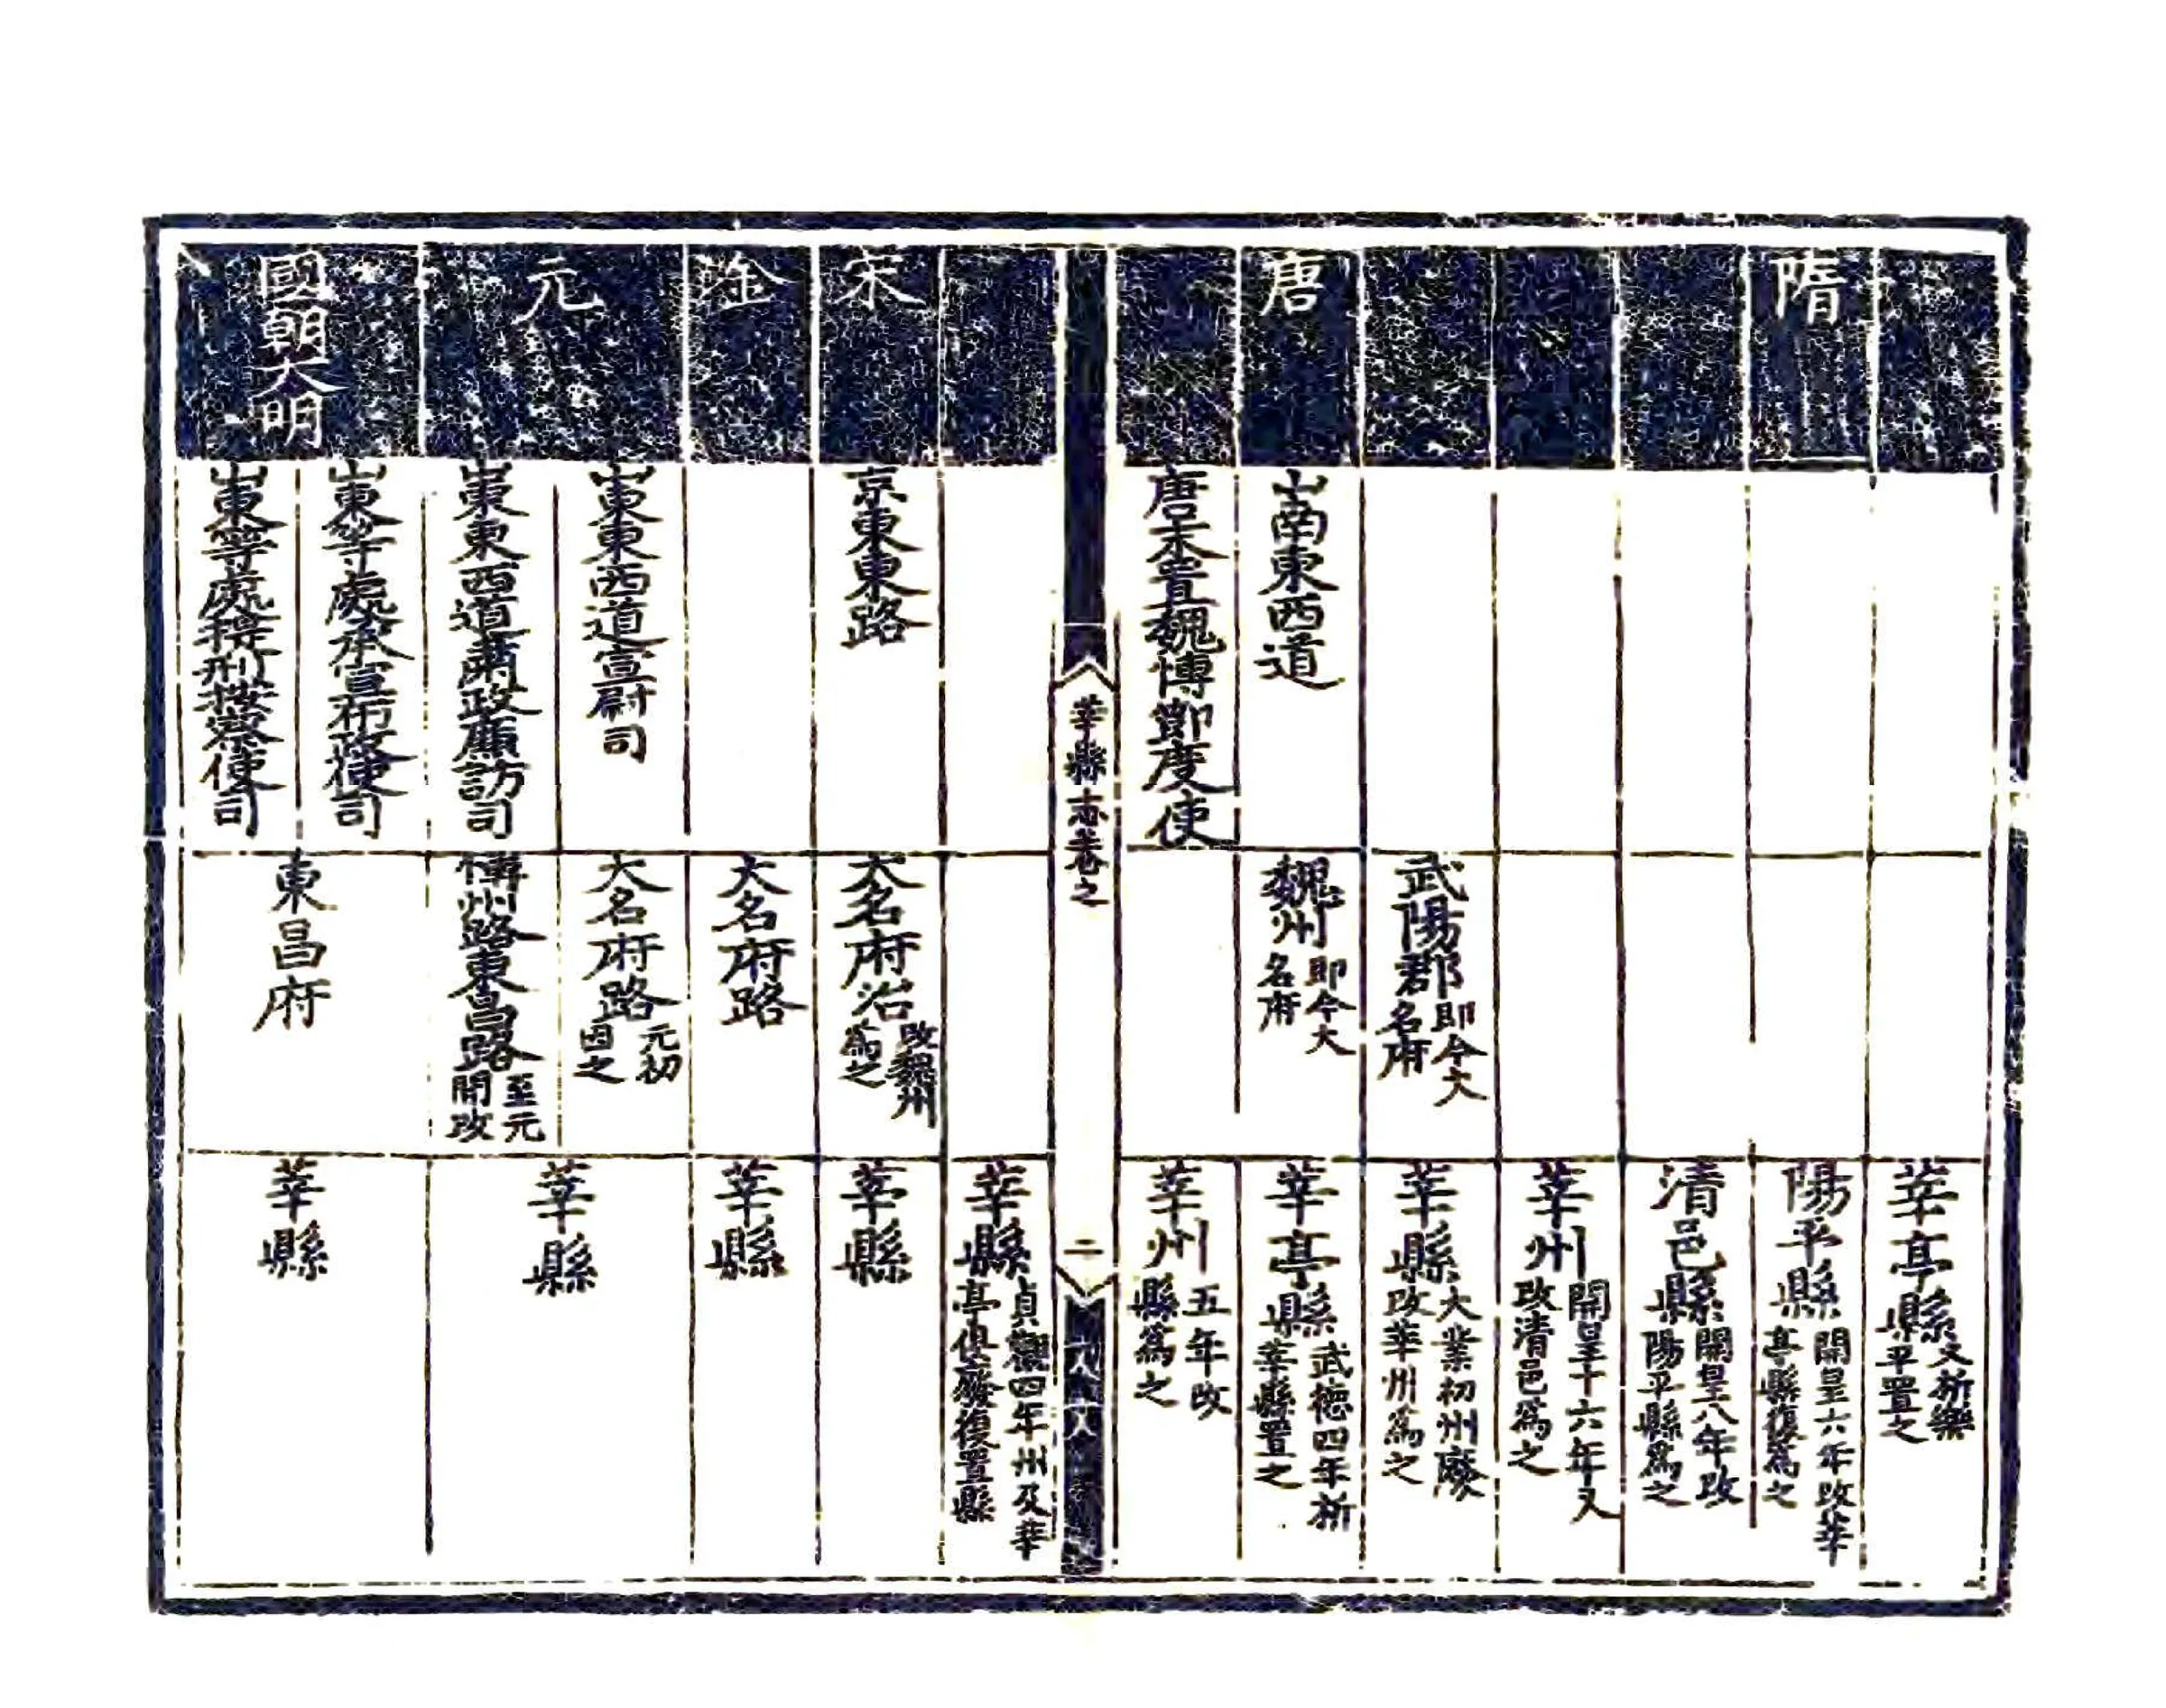 莘亭縣
又析樂
平置之
隋
陽平縣
開皇六年改莘
亭縣復爲之
清邑縣
開皇八年改
陽平縣爲之
莘州
開皇十六年又
改清邑爲之
武陽郡
即今大
名府
莘縣
大業初州廢
改莘州爲之
唐
山南東西道
魏州
即今大
名府
莘亭縣
武德四年析
莘縣置之
唐末置魏博節度使
莘州
五年改
縣爲之
莘縣志卷之
二
莘縣
貞觀四年州及莘
亭俱廢復置縣
宋
京東東路
大名府治
改魏州
爲之
莘縣
金
大名府路
莘縣
元
山東東西道宣尉司
大名府路
元初
因之
山東東西道肅政廉訪司
博州路東昌路
至元
間改
莘縣
國朝大明
山東等處承宣布政使司
山東等處提刑按察使司
東昌府
莘縣